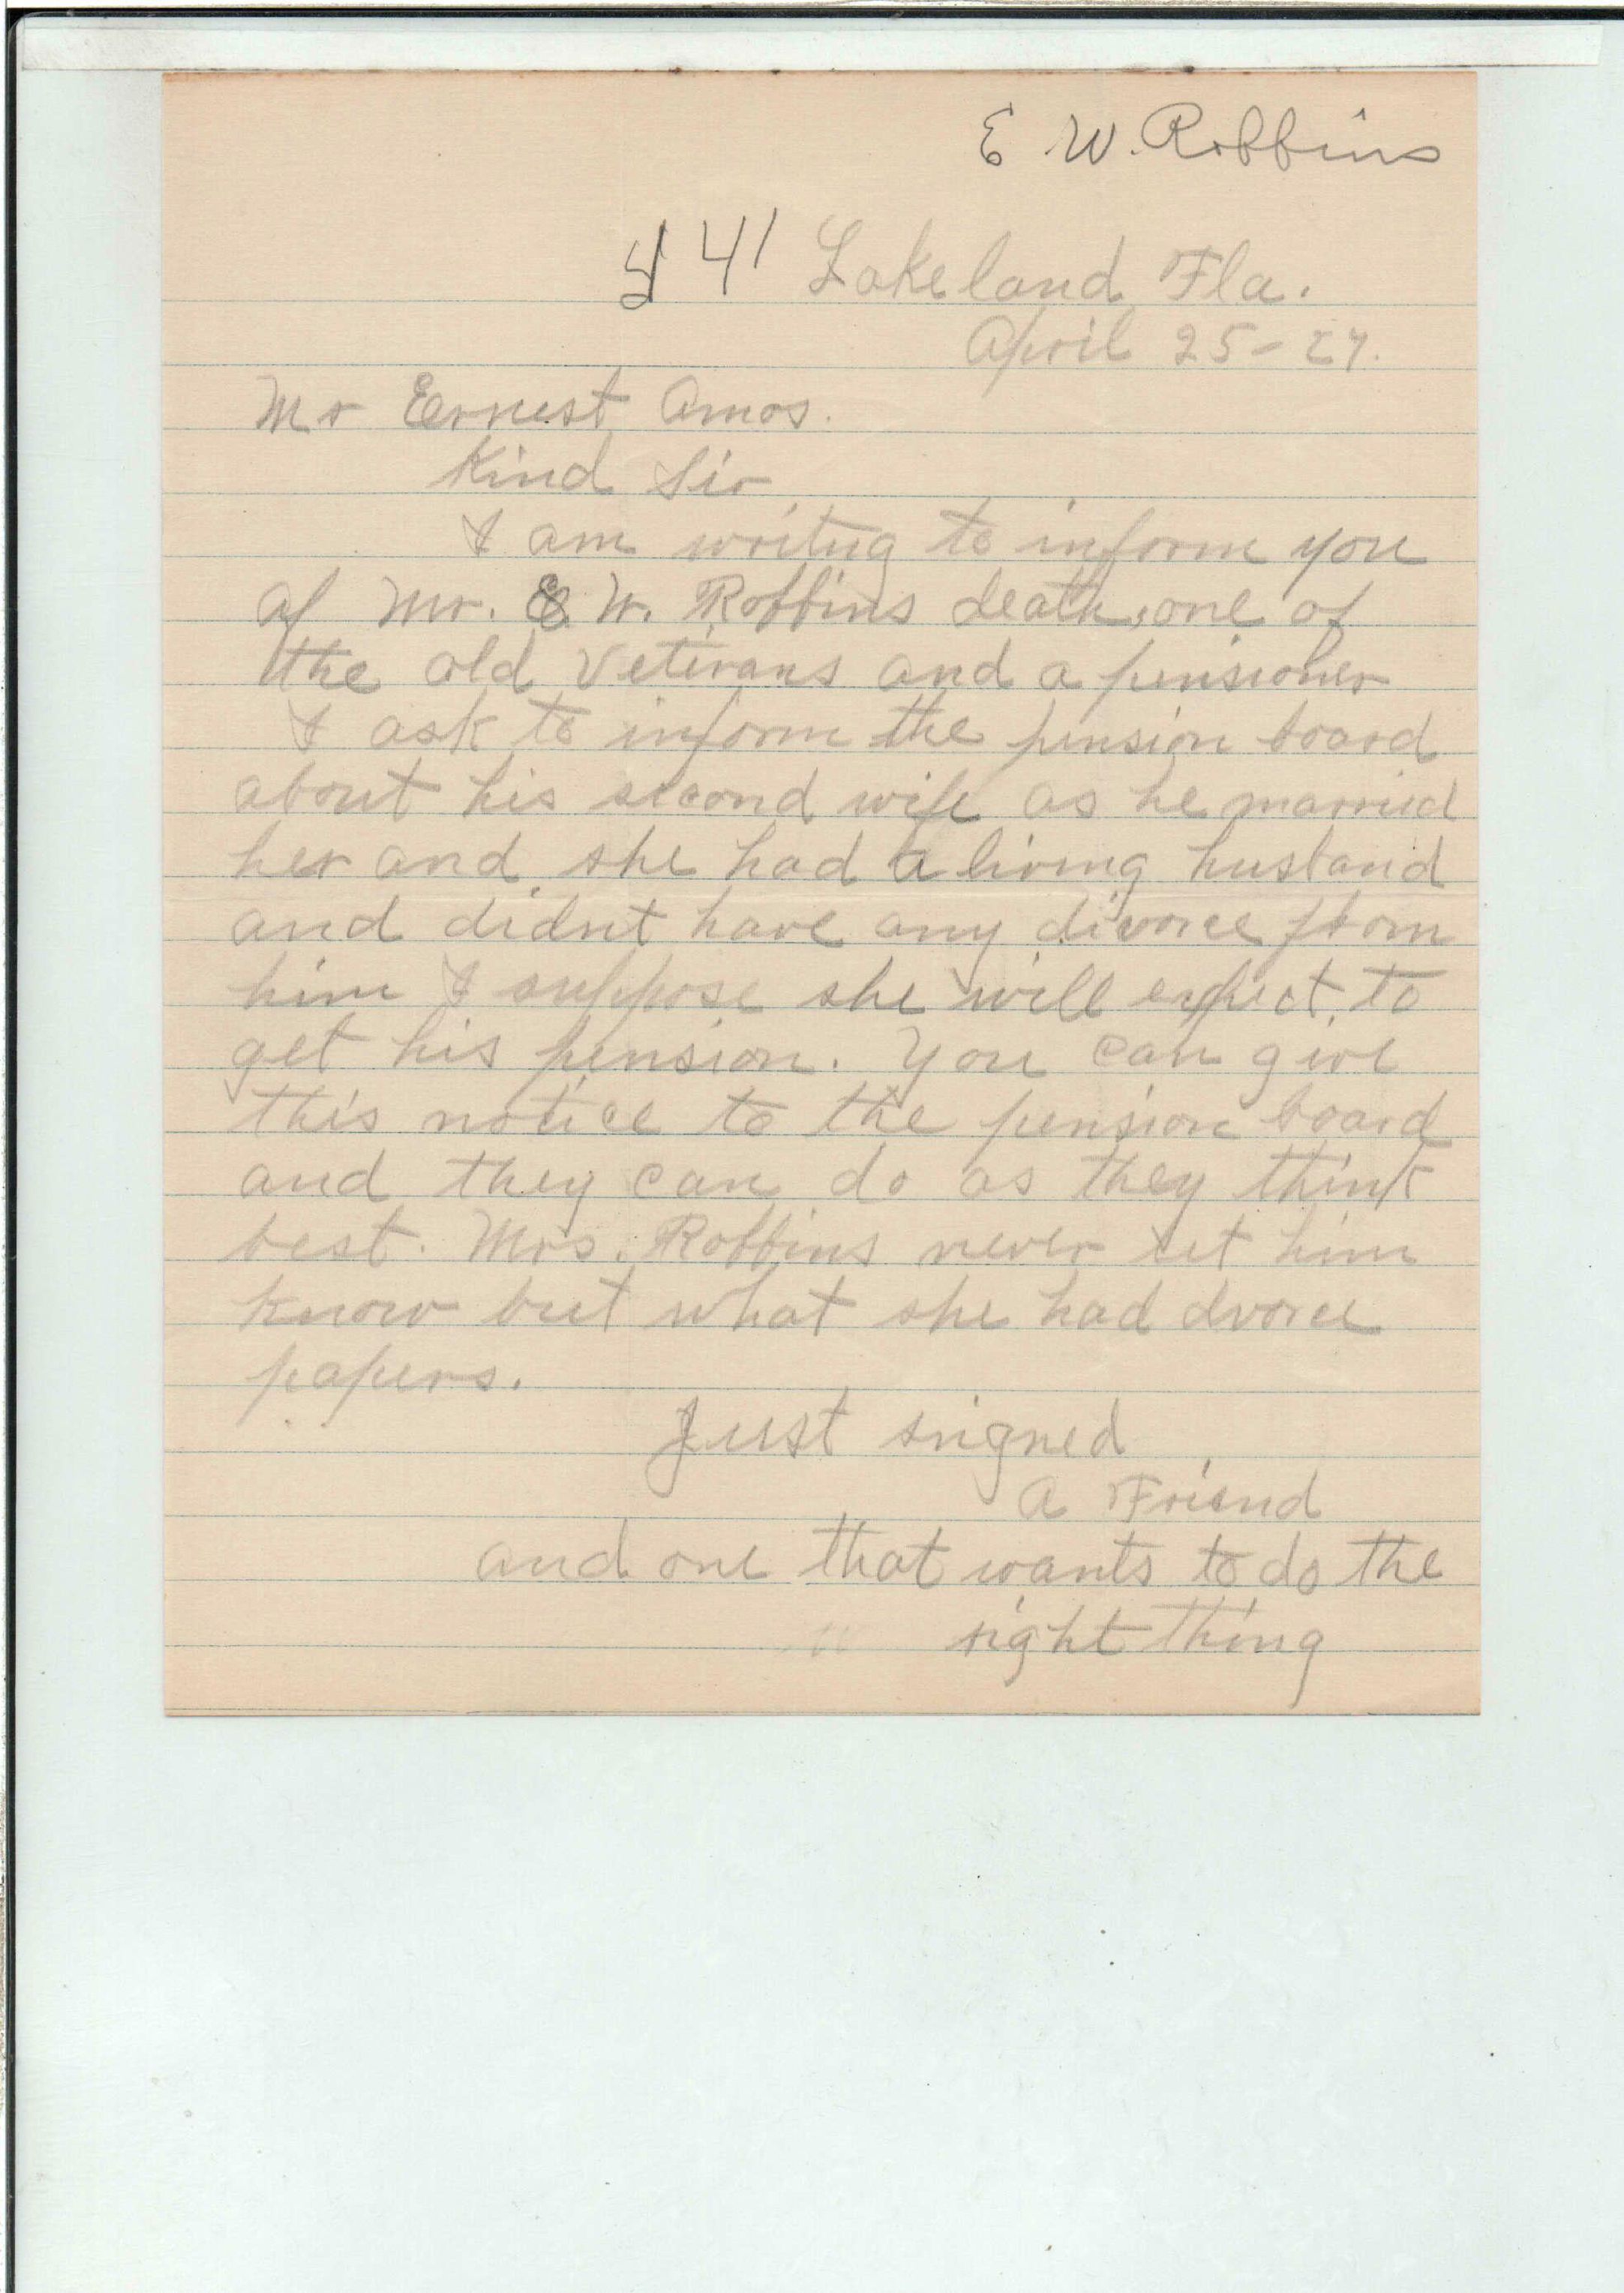 E W. Robbins
41 Lakeland Fla.
April 25-27.
Mr Eernest Amos.
Kind Sir
I am writng to inform you
of Mr. E. W. Robbins death, one of
the old Veterans and a pensioner
I ask to inform the pension board
about his second wife as he married
her and she had a living husband
and didnt have any divorce from
him I suppose she will expect to
get his pension. You can give
this notice to the pension board
and they can do as they think
best. Mrs. Robbins never let him
know but what she had dvorce
papers.
Just signed
A Friend
and one that wants to do the
right thing